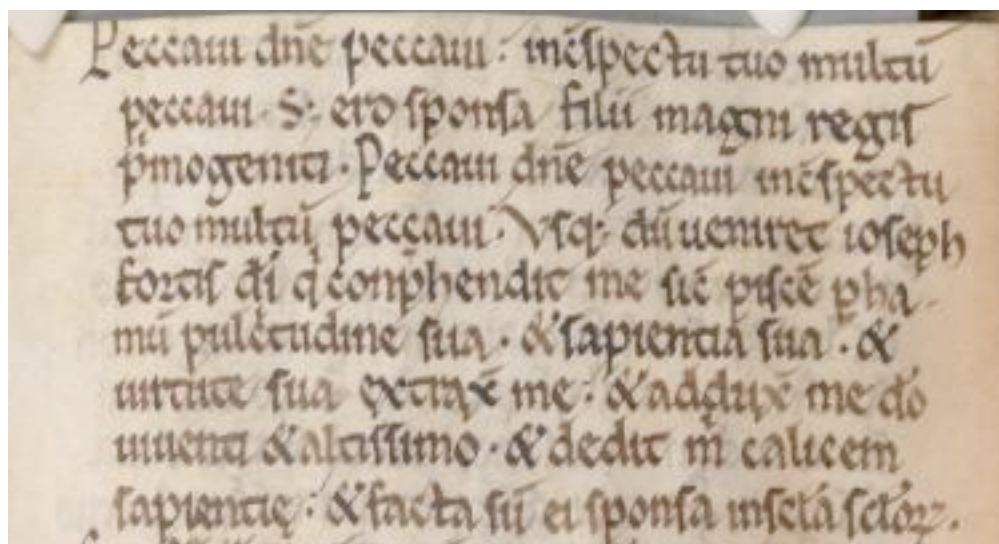 Peccaui dn̄e peccaui : inc̄spectu tuo multū
peccaui · S; ero sponsa filii magni regis
p̄mogeniti · Peccaui dn̄e peccaui inc̄spectu
tuo multū peccaui · Vsq; dū ueniret ioseph
fortis dī q̄ conp̄hendit me sic̄ piscē pha
mū pulc̄tudine sua · & sapientia sua · &
uirtute sua extrax̄ me : & addux̄ me dō
uiuenti & altissimo · & dedit m̄ calicem
sapientię : & facta sū ei sponsa insclā sclōꝝ ·